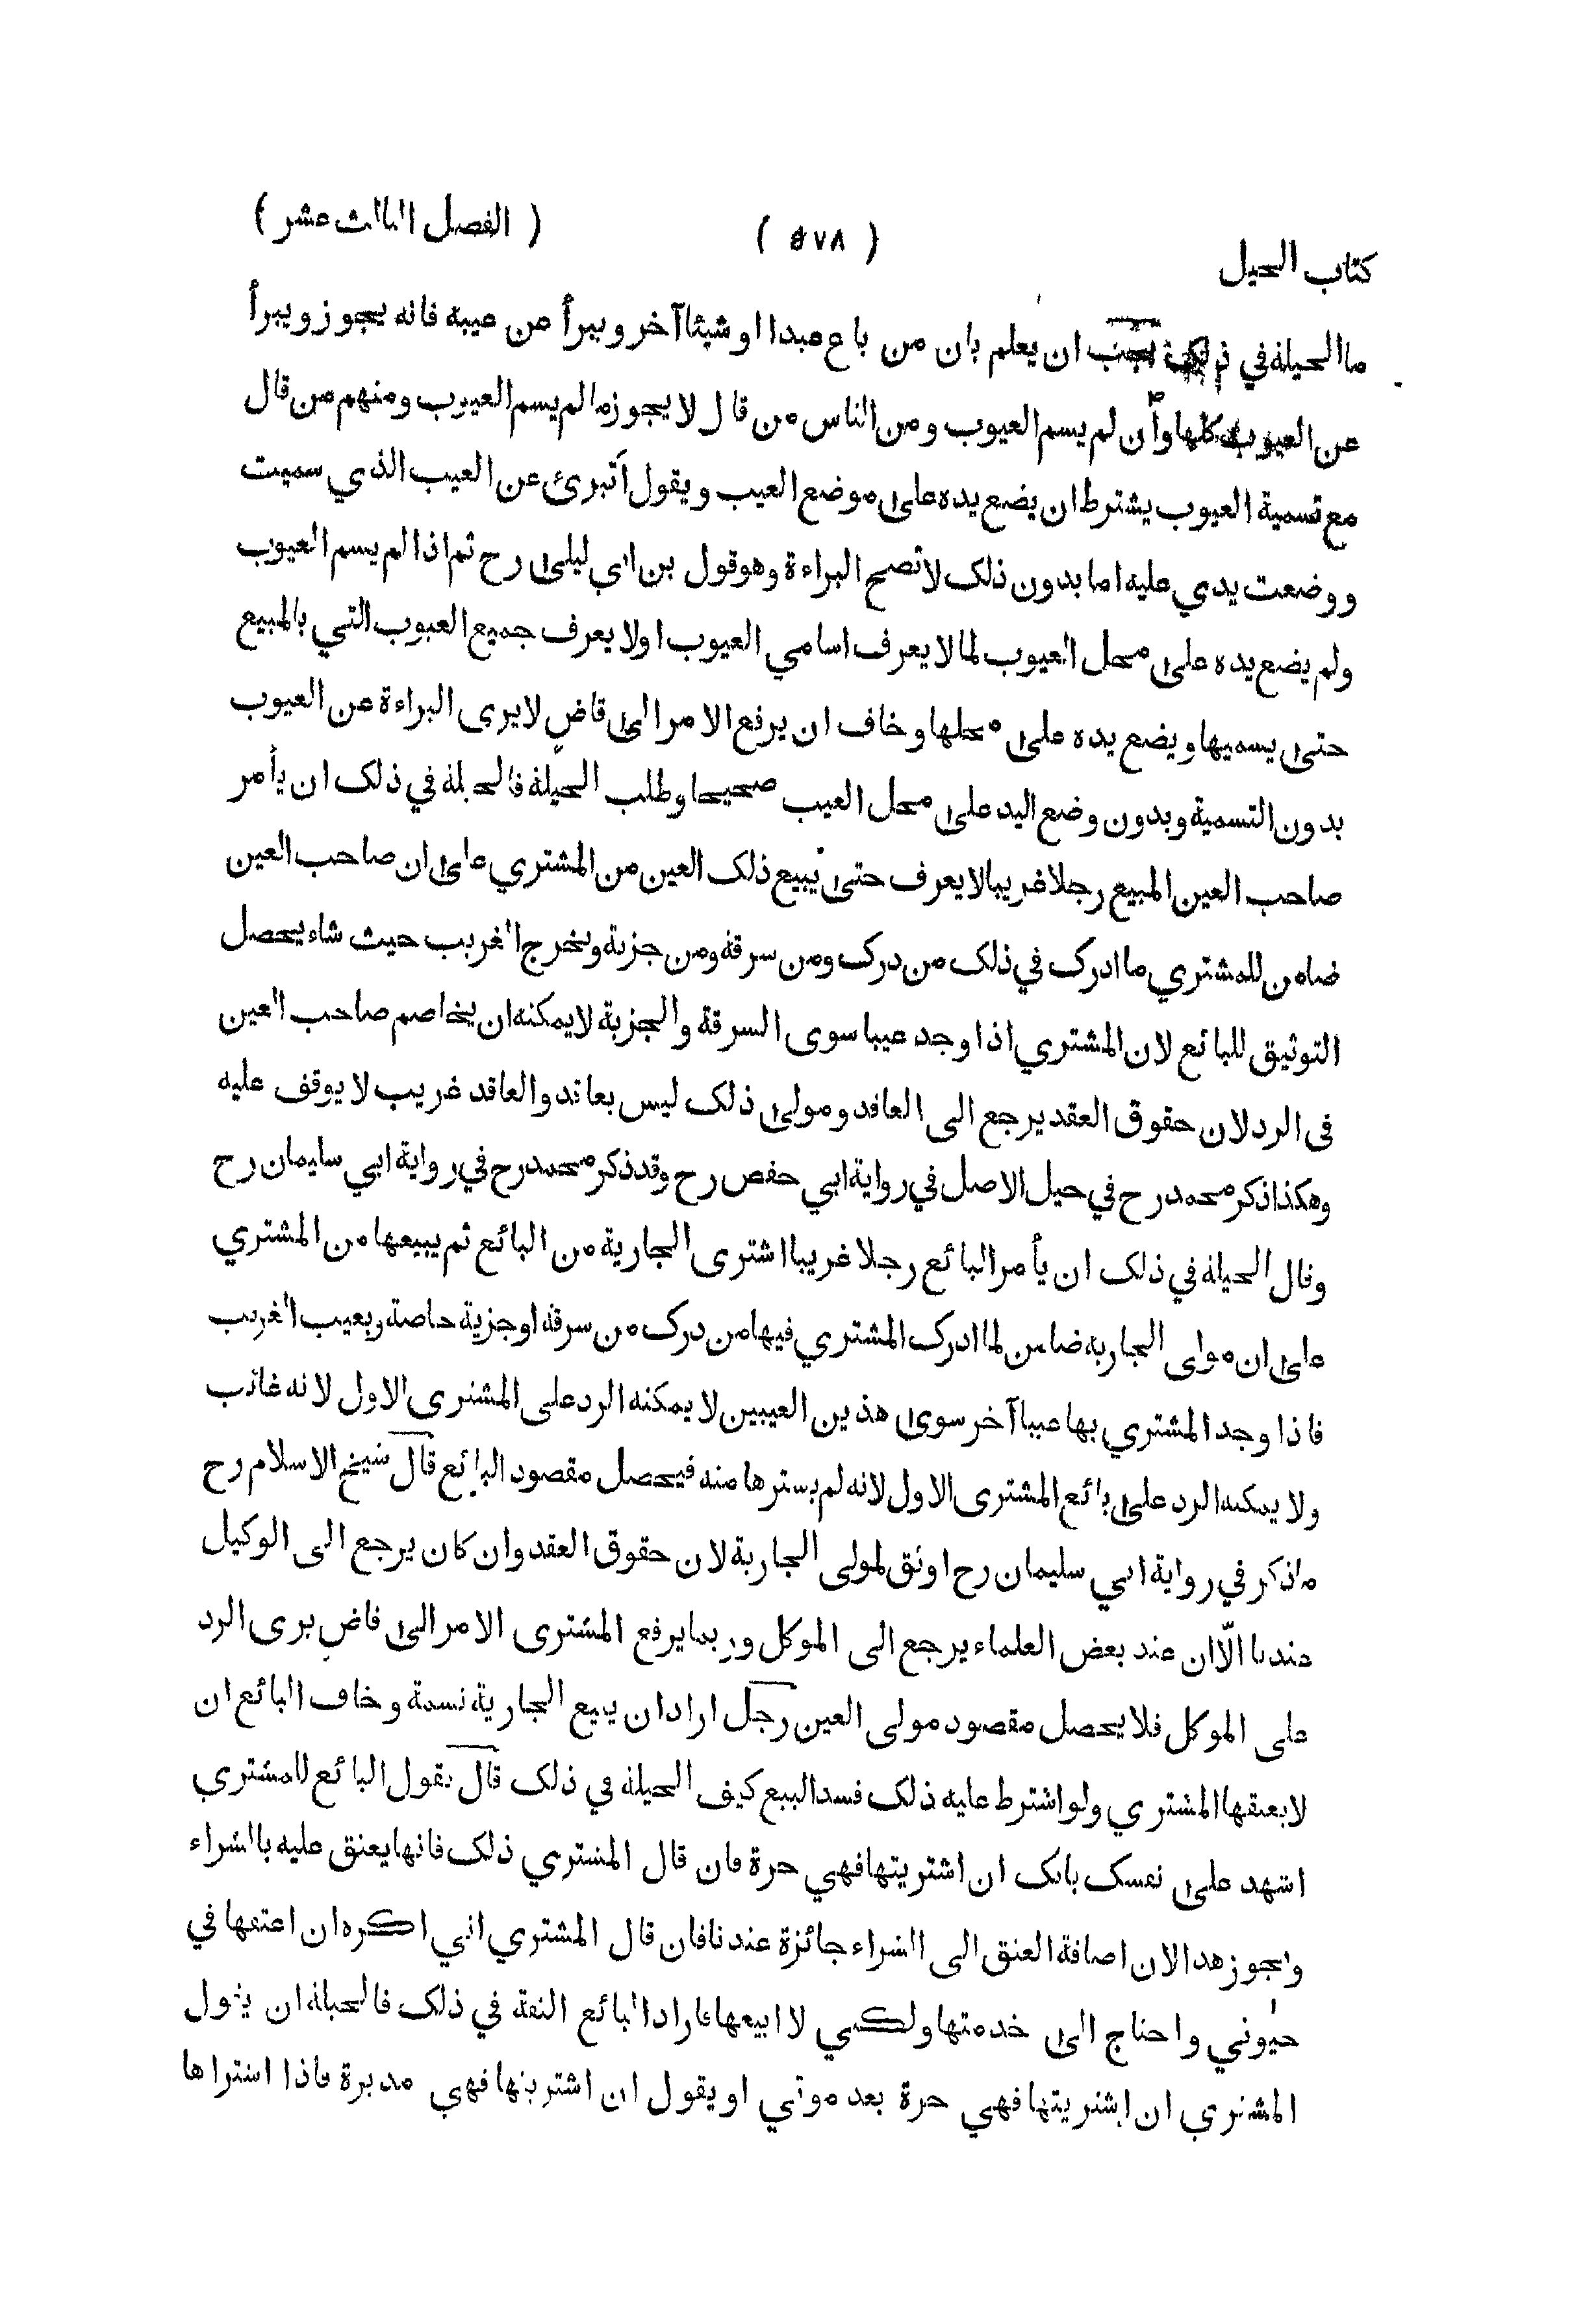 كتاب الحيل ( ٥٧٨ ) ( الفصل الثالث عشر )
ما الحيلة في ذلك يجب ان يعلم بان من باع عبدا او شيئا آخر ويبرأ من عيبه فانه يجوز ويبرأ
عن العيوب كلها وان لم يسم العيوب ومن الناس من قال لا يجوز ما لم يسم العيوب ومنهم من قال
مع تسمية العيوب يشترط ان يضع يده على موضع العيب ويقول أتبرئ عن العيب الذي سميت
ووضعت يدي عليه اما بدون ذلك لا تصح البراءة وهو قول بن ابي ليلى رح ثم اذا لم يسم العيوب
ولم يضع يده على محل العيوب لما لا يعرف اسامي العيوب او لا يعرف جميع العيوب التي بالمبيع
حتى يسميها ويضع يده على محلها وخاف ان يرفع الامر الى قاض لا يرى البراءة عن العيوب
بدون التسمية وبدون وضع اليد على محل العيب صحيحا وطلب الحيلة فالحيلة في ذلك ان يأمر
صاحب العين المبيع رجلا غريبا لا يعرف حتى يبيع ذلك العين من المشتري على ان صاحب العين
ضامن للمشتري ما ادرك في ذلك من درك ومن سرقة ومن جزية ويخرج الغريب حيث شاء يحصل
التوثيق للبائع لان المشتري اذا وجد عيبا سوى السرقة والجزية لا يمكنه ان يخاصم صاحب العين
في الرد لان حقوق العقد يرجع الى العاقد ومولى ذلك ليس بعاقد والعاقد غريب لا يوقف عليه
وهكذا ذكر محمد رح في حيل الاصل في رواية ابي حفص رح وقد ذكر محمد رح في رواية ابي سليمان رح
وقال الحيلة في ذلك ان يأمر البائع رجلا غريبا اشترى الجارية من البائع ثم يبيعها من المشتري
على ان مولى الجارية ضامن لما ادرك المشتري فيها من درك من سرقة او جزية خاصة ويعيب الغريب
فاذا وجد المشتري بها عيبا آخر سوى هذين العيبين لا يمكنه الرد على المشترى الاول لانه غائب
ولا يمكنه الرد على بائع المشترى الاول لانه لم يسترها منه فيحصل مقصود البائع قال شيخ الاسلام رح
ماذكر في رواية ابي سليمان رح اوثق لمولى الجارية لان حقوق العقد وان كان يرجع الى الوكيل
عندنا الّا ان عند بعض العلماء يرجع الى الموكل وربما يرفع المشترى الامر الى قاض يرى الرد
على الموكل فلا يحصل مقصود مولى العين رجل اراد ان يبيع الجارية نسمة وخاف البائع ان
لا يعتقها المشتري ولو اشترط عليه ذلك فسد البيع كيف الحيلة في ذلك قال يقول البائع للمشتري
اشهد على نفسك بانك ان اشتريتها فهي حرة فان قال المشتري ذلك فانها يعتق عليه بالشراء
ويجوز هذا لان اضافة العتق الى الشراء جائزة عندنا فان قال المشتري اني اكره ان اعتقها في
حيوتي واحتاج الى خدمتها ولكني لا ابيعها فاراد البائع الثقة في ذلك فالحيلة ان يقول
المشتري ان اشتريتها فهي حرة بعد موتي او يقول ان اشتريتها فهي مدبرة فاذا اشتراها